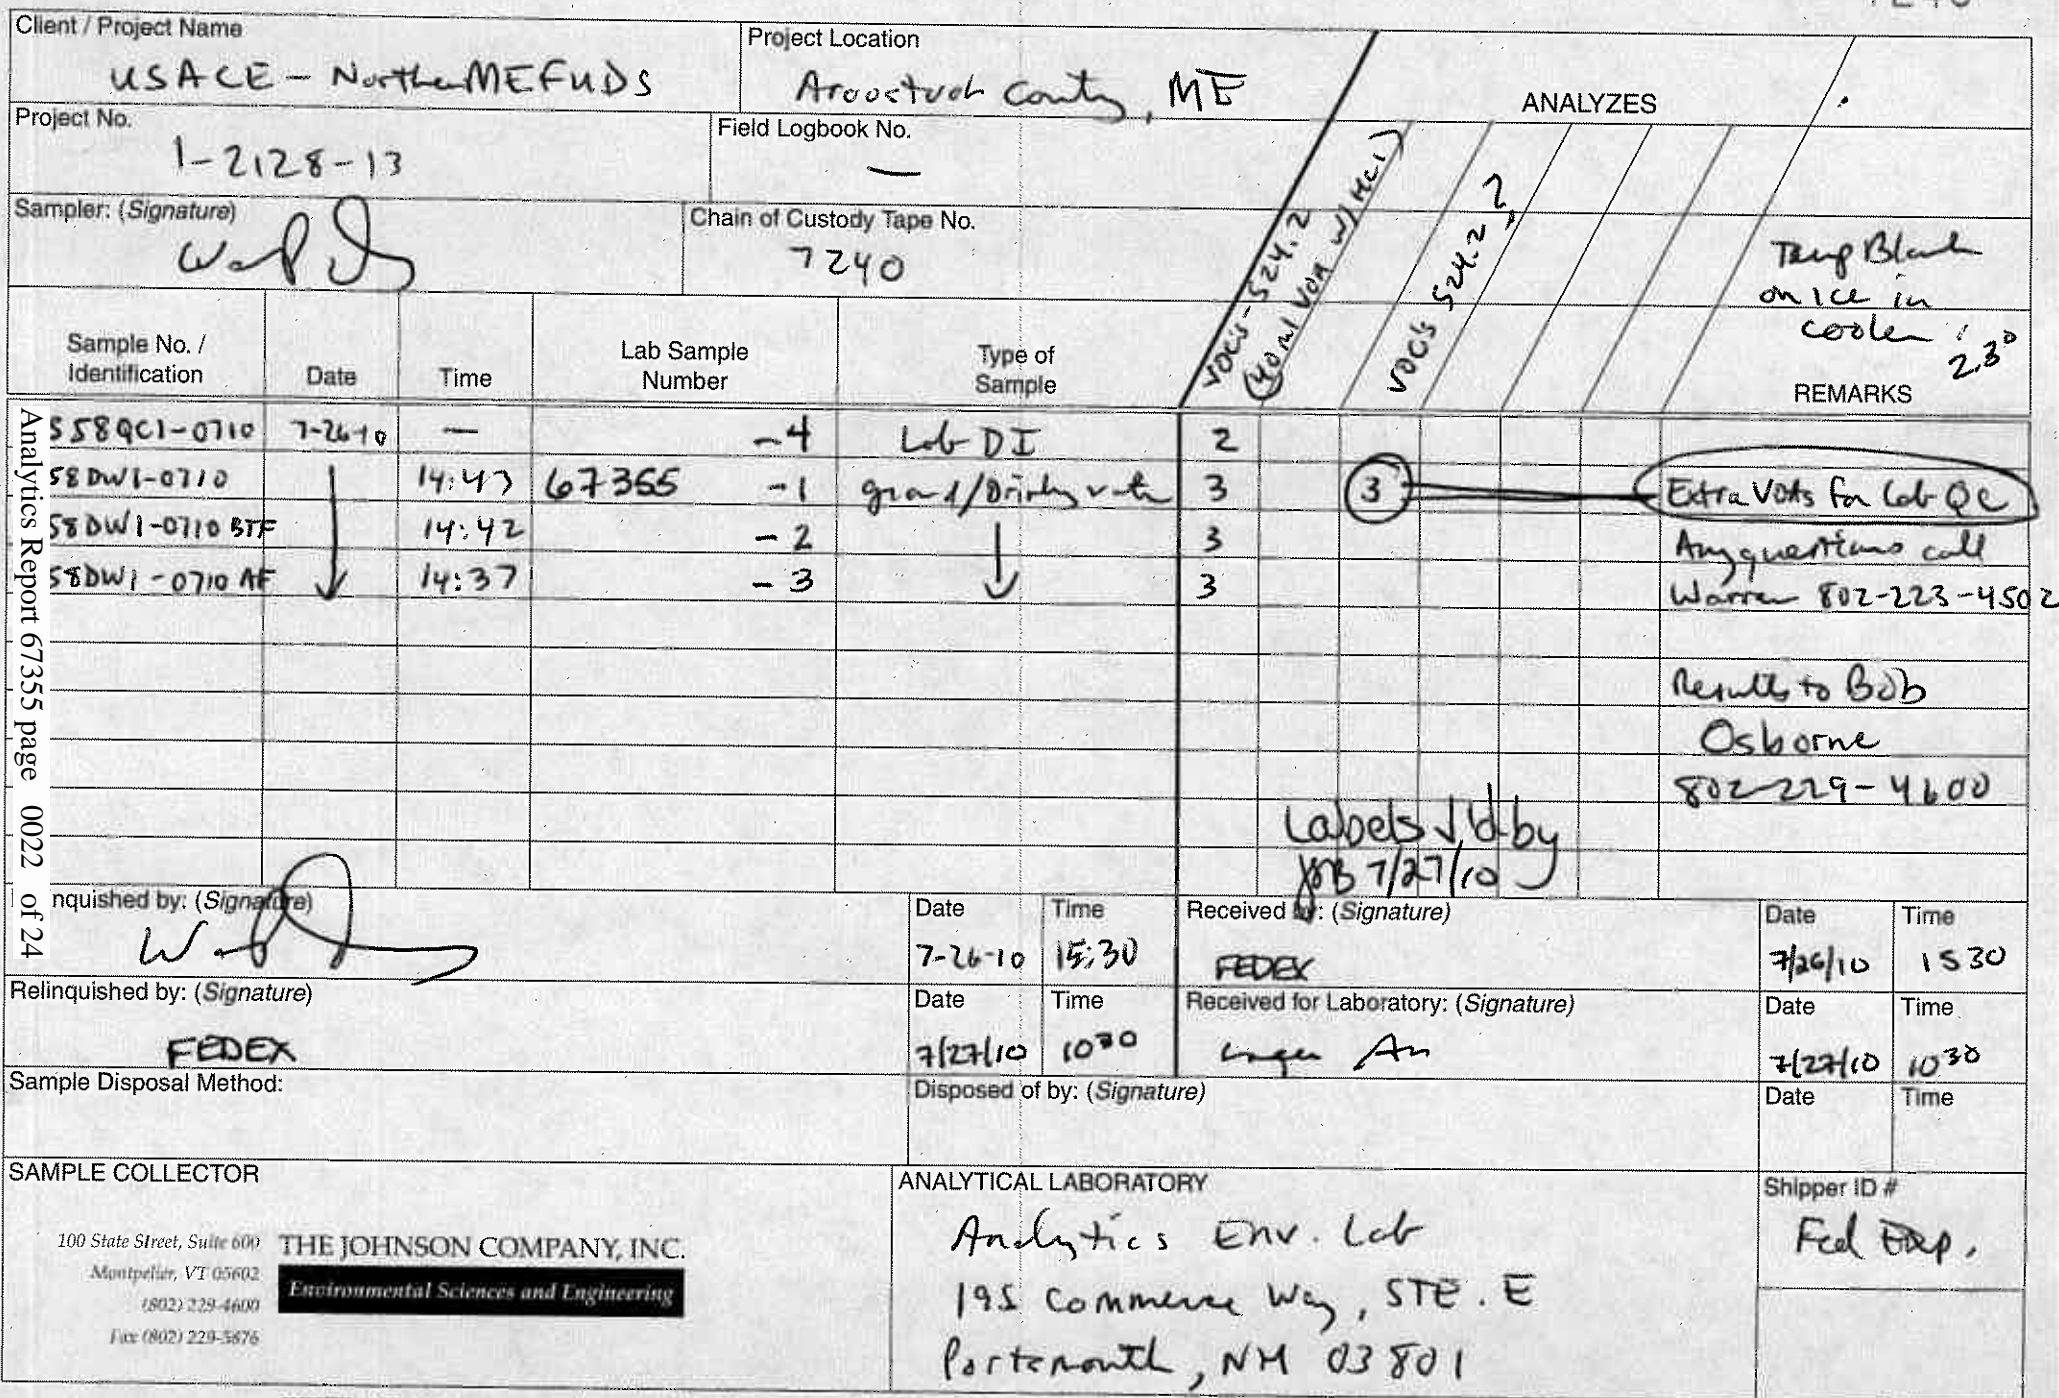 Client / Project Name
USACE - Northern MEFUDS
Project Location
Aroostook County, ME
ANALYZES
Project No.
1-2128-13
Field Logbook No.
—
Sampler: (Signature)
Chain of Custody Tape No.
7240
VOC's - 524.2
(40 ml VOA w/HCl)
VOC's 524.2
Temp Blank
on Ice in
cooler
2.3°
REMARKS
Sample No. / Identification
Date
Time
Lab Sample Number
Type of Sample
S58QC1-0710 7-26-10 — -4 Lab DI 2
58DW1-0710 14:43 67355 -1 ground/Drinking water 3 3 Extra VOAs for Lab QC
58DW1-0710 BTF 14:42 -2 3 Any questions call
58DW1-0710 AF 14:37 -3 3 Warren 802-223-4502
Results to Bob
Osborne
802-229-4600
Labels √'d by
JRB 7/27/10
Analytics Report 67355 page 0022 of 24
nquished by: (Signature)
Date
7-26-10
Time
15:30
Received by: (Signature)
FEDEX
Date
7/26/10
Time
1530
Relinquished by: (Signature)
FEDEX
Date
7/27/10
Time
1030
Received for Laboratory: (Signature)
Date
7/27/10
Time
1030
Sample Disposal Method:
Disposed of by: (Signature)
Date
Time
SAMPLE COLLECTOR
100 State Street, Suite 600
Montpelier, VT 05602
(802) 229-4600
Fax (802) 229-5876
THE JOHNSON COMPANY, INC.
Environmental Sciences and Engineering
ANALYTICAL LABORATORY
Analytics Env. Lab
195 Commerce Way, STE. E
Portsmouth, NH 03801
Shipper ID #
Fed Exp.